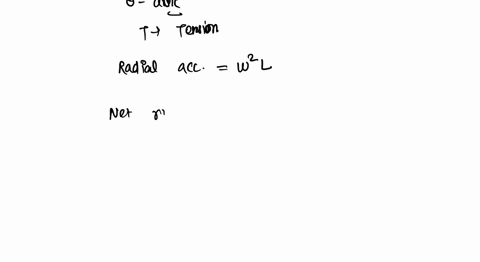 θ =
T → Tension
Radial acc. = ω²L
Net